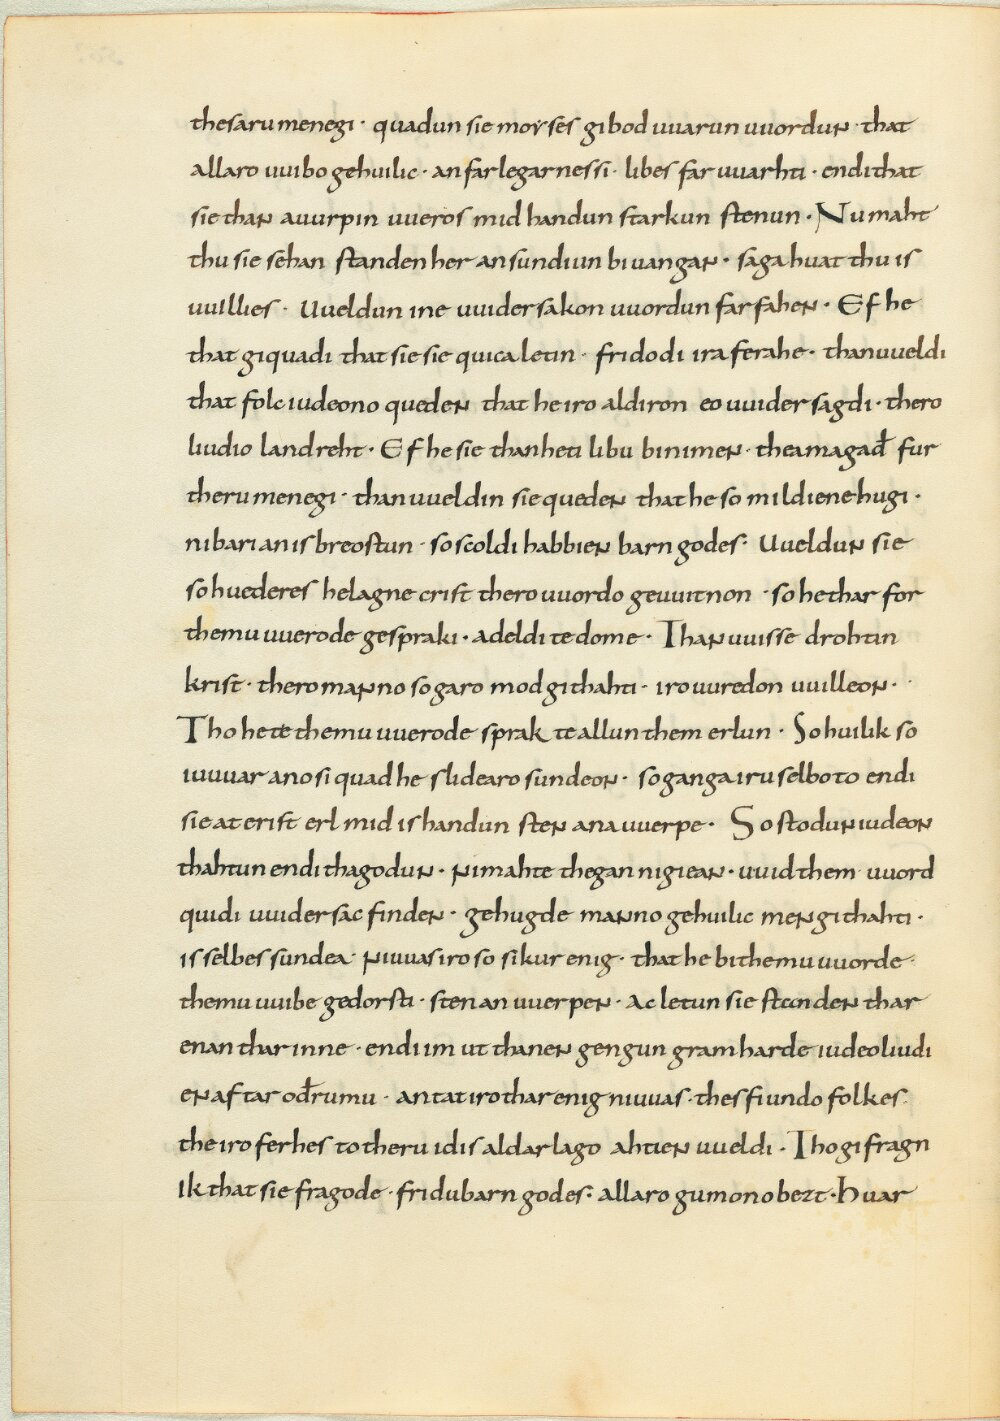 thesaru menegi · quadun sie moyses gibod uuarun uuordun · that
allaro uuibo gehuilic · an farlegarnessi · libes far uuarhti · endi that
sie than auurpin uueros mid handun starkun stenun · Nu maht
thu sie sehan standen her an sundiun biuangan · saga huat thu is
uuillies · Uueldun ine uuidersakon uuordun farfahen · Ef he
that giquadi that sie sie quica letin · fridodi ira ferahe · than uueldi
that folc iudeono queden that he iro aldiron eo uuidersagdi · thero
liudio landreht · Ef he sie than heti libu binimen · thea magađ fur
theru menegi · than uueldin sie queden that he so mildiene hugi ·
ni bari an is breostun · so scoldi habbien barn godes · Uueldun sie
so huederes helagne crist thero uuordo geuuitnon · so he thar for
themu uuerode gespraki · adeldi te dome · Than uuisse drohtin
krist · thero manno so garo modgithahti · iro uuredon uuilleon ·
Tho he te themu uuerode sprak te allun them erlun · So huilik so
iuuuar ano si quad he slidearo sundeon · so ganga iru selbo to endi
sie at erist erl mid is handun sten ana uuerpe · So stodun iudeon
thahtun endi thagodun · ni mahte thegan nigiean · uuid them uuord
quidi uuidersac finden · gehugde manno gehuilic mengithahti ·
is selbes sundea · ni uuas iro so sikur enig · that he bi themu uuorde ·
themu uuibe gedorsti · sten an uuerpen · ac letun sie standen thar
enan thar inne · endi im ut thanen gengun gramharde iudeo liudi
en aftar ođrumu · antat iro thar enig ni uuas · thes fiundo folkes ·
the iro ferhes to theru idis aldarlago ahtien uueldi · Tho gifragn
Ik that sie fragode · fridubarn godes · allaro gumono bezt · Huar